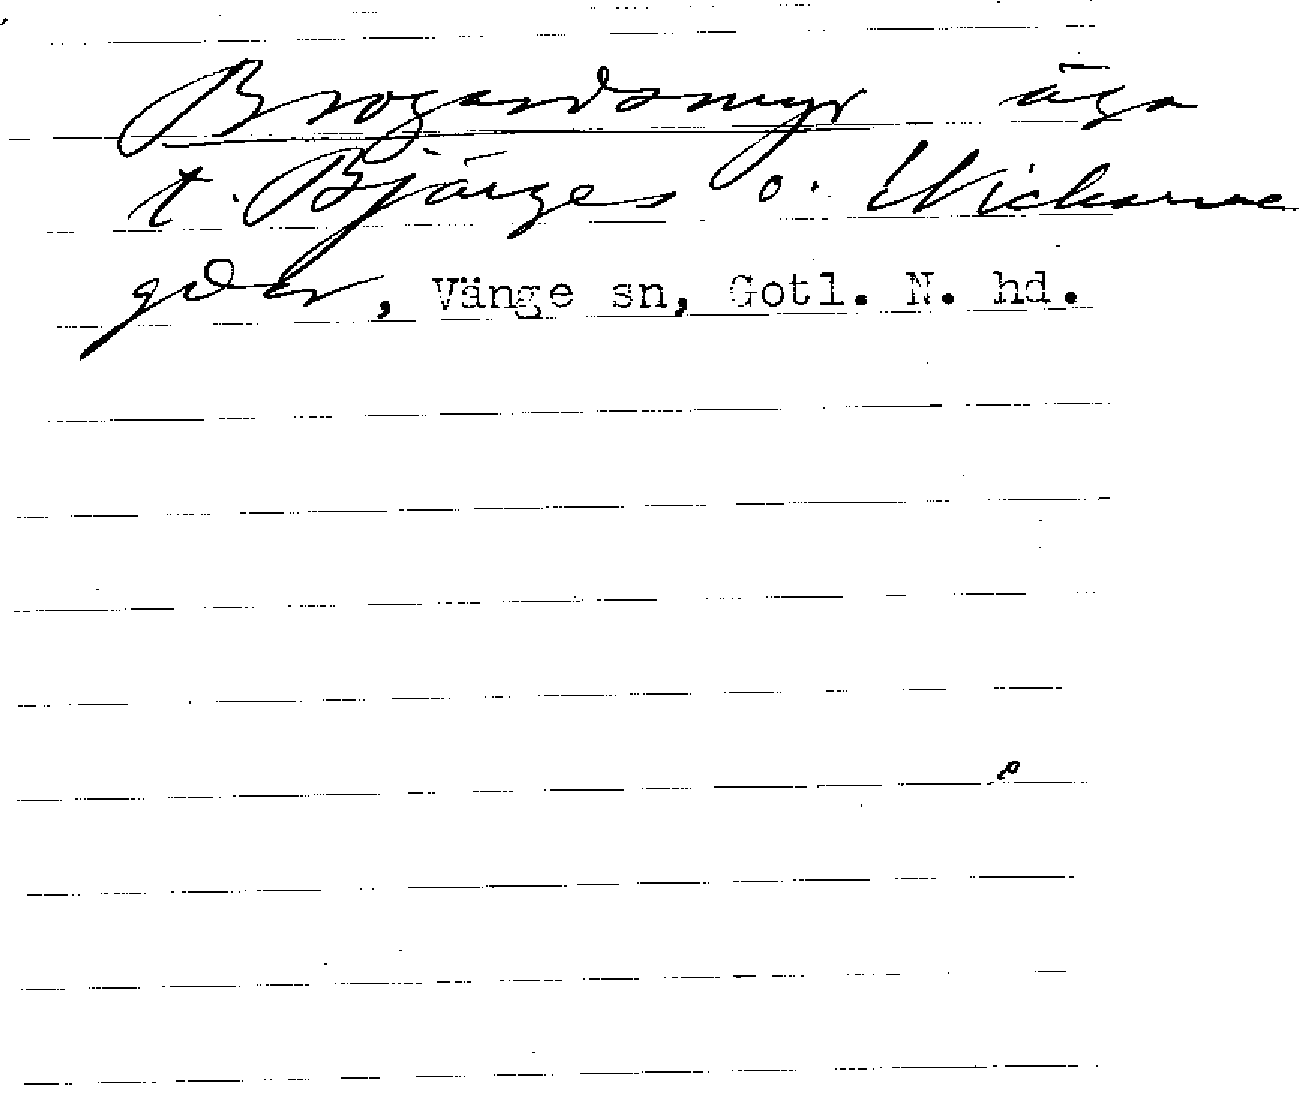 Brogardsmyr äga
t. Bjärges o. Wickarve
gdr, Vänge sn, Gotl. N. hd.